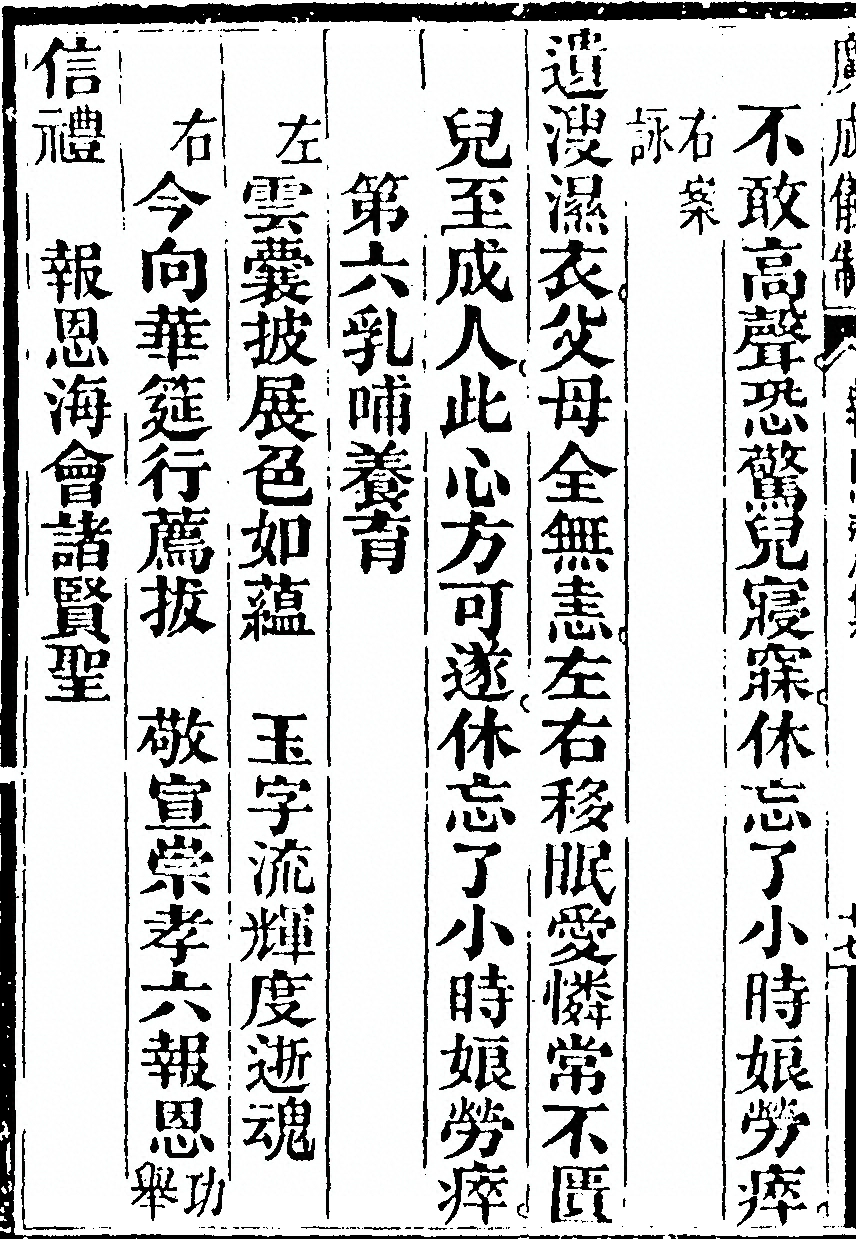 廣成儀制
不敢高聲恐驚兒寢寐休忘了小時娘勞瘁
右案詠
遺溲濕衣父母全無恚左右移眠愛憐常不匱
兒至成人此心方可遂休忘了小時娘勞瘁
第六乳哺養育
左 雲囊披展色如蘊 玉字流輝度逝魂
右 今向華筵行薦拔 敬宣崇孝六報恩 功舉
信禮 報恩海會諸賢聖